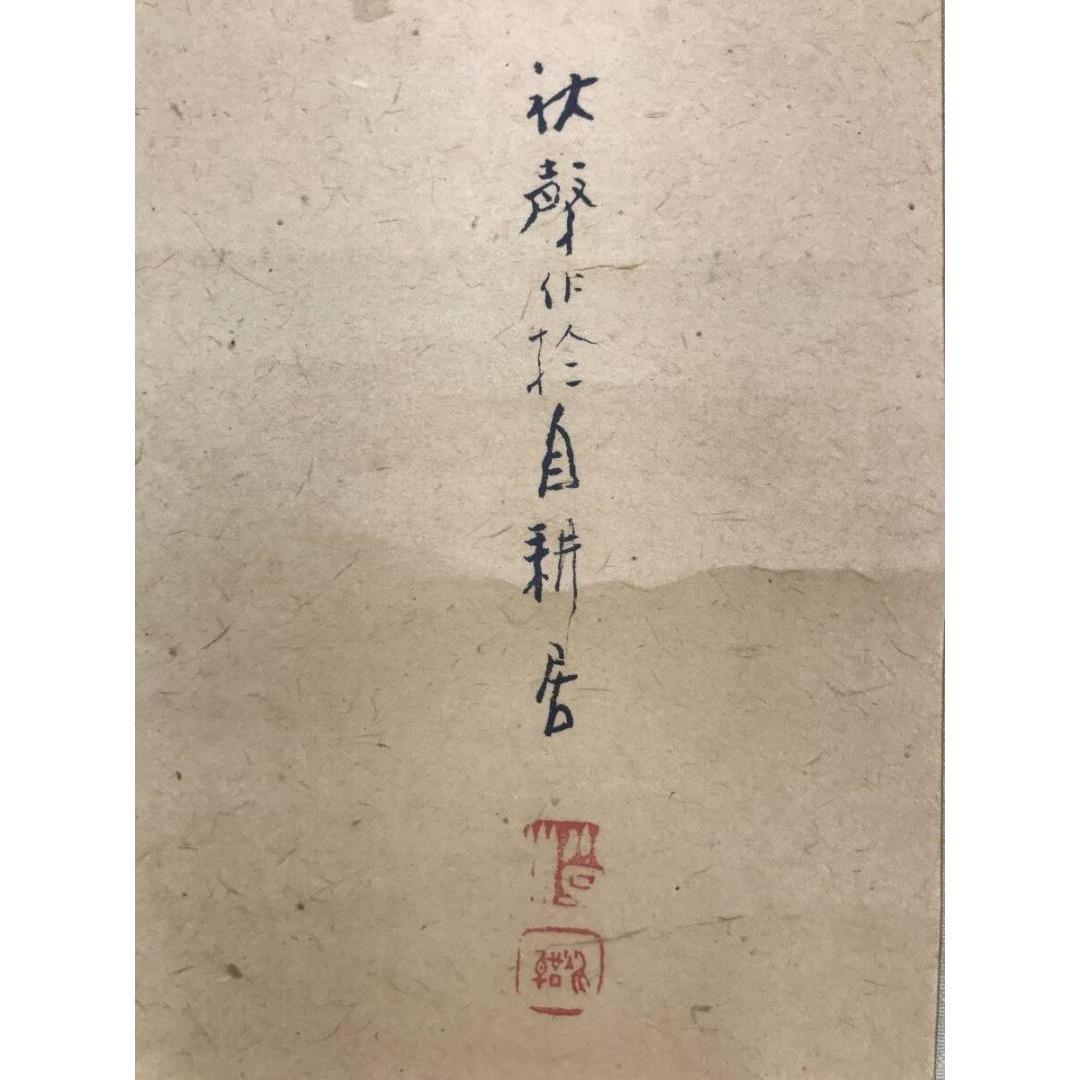 秋聲作於自耕居